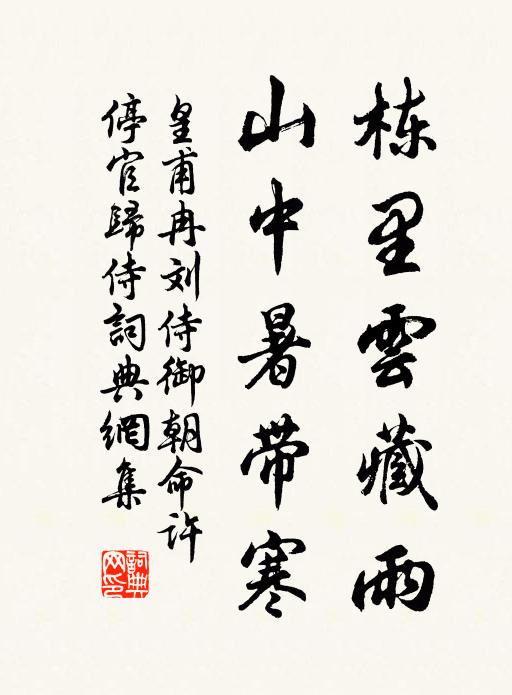 栋里雲藏雨
山中暑带寒
皇甫冉刘侍御朝命许
停官歸侍詞典網集
詞典
网印